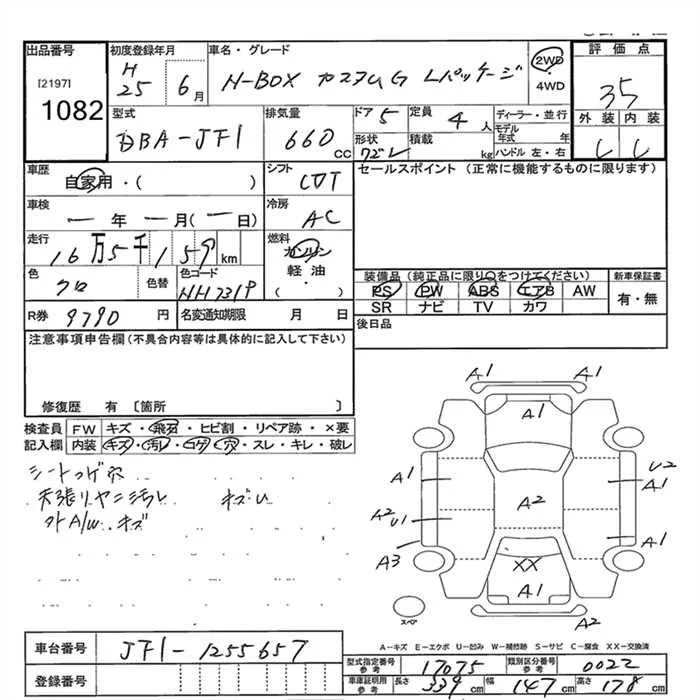 出品番号
[2197]
1082
初度登録年月
H
25 6月
車名・グレード
N-BOX カスタムG Lパッケージ
2WD
・
4WD
評価点
3.5
外装 内装
型式
DBA-JF1
排気量
660 CC
ドア 5
定員 4 人
ディーラー・並行
モデル
年式 年
ハンドル 左・右
形状
積載 kg
車歴
自家用・( )
シフト
CVT
セールスポイント (正常に機能するものに限ります)
車検
一年 一月 (一日)
冷房
AC
走行
16万5千159 km
燃料
ガソリン
軽油
( ・ )
色
クロ
色替
色コード
NH731P
装備品 (純正品に限り○をつけてください)
新車保証書
PS PW ABS エアB AW
SR ナビ TV カワ
有・無
R券 9790 円
名変通知期限 月 日
後日品
注意事項申告欄(不具合内容等は具体的に記入して下さい)
修復歴 有 〔箇所 〕
検査員
記入欄
FW キズ・飛石・ヒビ割・リペア跡・×要
内装 キズ・汚レ・コゲ・穴・スレ・キレ・破レ
シートコゲ穴
天張リヤニ汚レ キズU
外A/W キズ
A1
A1
A1
U2
A1
A2
U1
A2
A3
A1
XX
A1
A2
スペア
A-キズ E-エクボ U-凹み W-補修跡 S-サビ C-腐食 XX-交換済
車台番号 JF1-1255657
登録番号
型式指定番号
参考
17075
類別区分番号
参考
0022
車庫証明用
参考
長さ 339 cm 幅 147 cm 高さ 178 cm